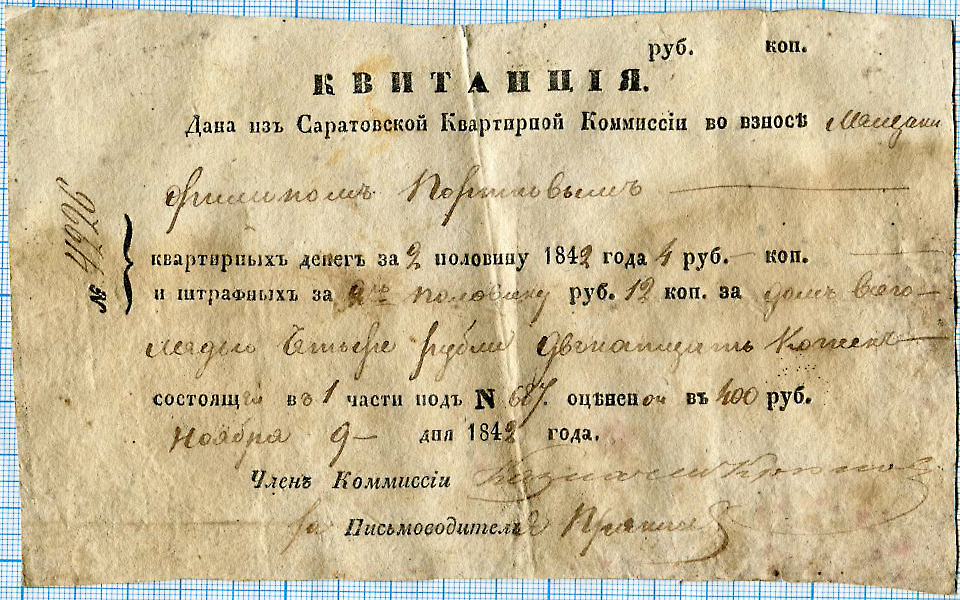 руб. коп.
КВИТАНЦІЯ.
Дана изъ Саратовской Квартирной Коммиссіи во взносѣ
Филипомъ
квартирныхъ денегъ за 2 половину 1842 года 4 руб. — коп.
и штрафныхъ за половину руб. 12 коп. за домъ всего
Четыре рубли двенатцать копеекъ
состоящей въ 1 части подъ N 687. оцѣнен въ 400 руб.
Ноября 9 — дня 1842 года.
Членъ Коммиссіи
за Письмоводителя
№